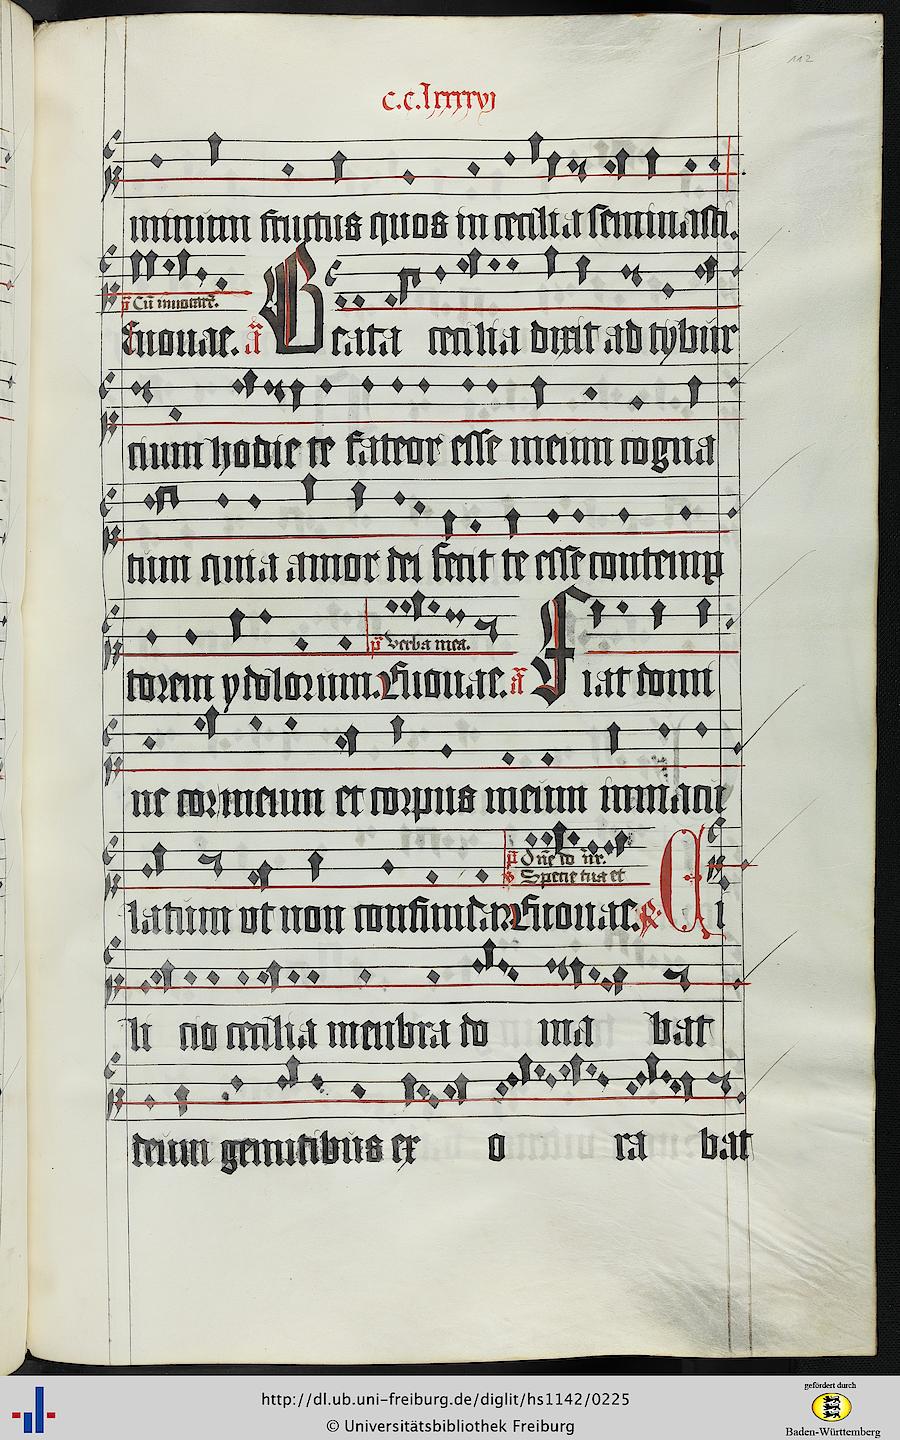 112
c.c.lxxxxvj
minum fructus quos in cecilia seminasti.
ps Cū invocarē.
Euouae. añ Beata cecilia dixit ad tybur
cium hodie te fateor esse meum cogna
tum quia amor dei fecit te esse contemp
ps Verba mea.
torem ydolorum. Euouae. añ Fiat domi
ne cor meum et corpus meum immacu
ps Dn̄e do nr̄.
Specie tua et
latum ut non confundar Euouae. R Ci
li cio cecilia membra do ma bat
deum gemitibus ex o ra bat
http://dl.ub.uni-freiburg.de/diglit/hs1142/0225
© Universitätsbibliothek Freiburg
gefördert durch
Baden-Württemberg